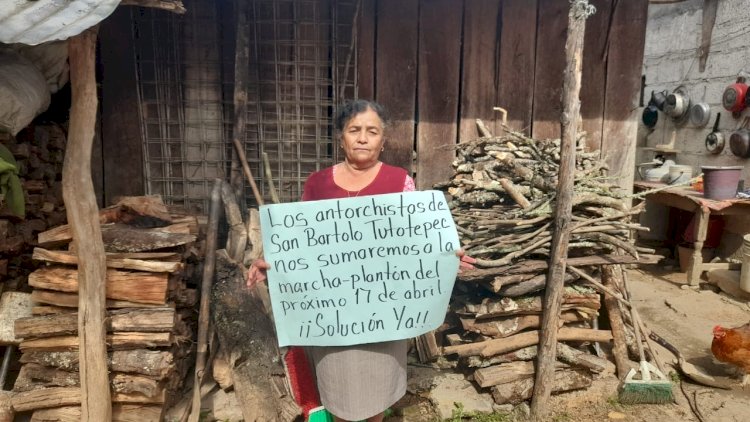 Los antorchistas de
San Bartolo Tutotepec
nos sumaremos a la
marcha-plantón del
próximo 17 de abril
¡¡Solución Ya!!